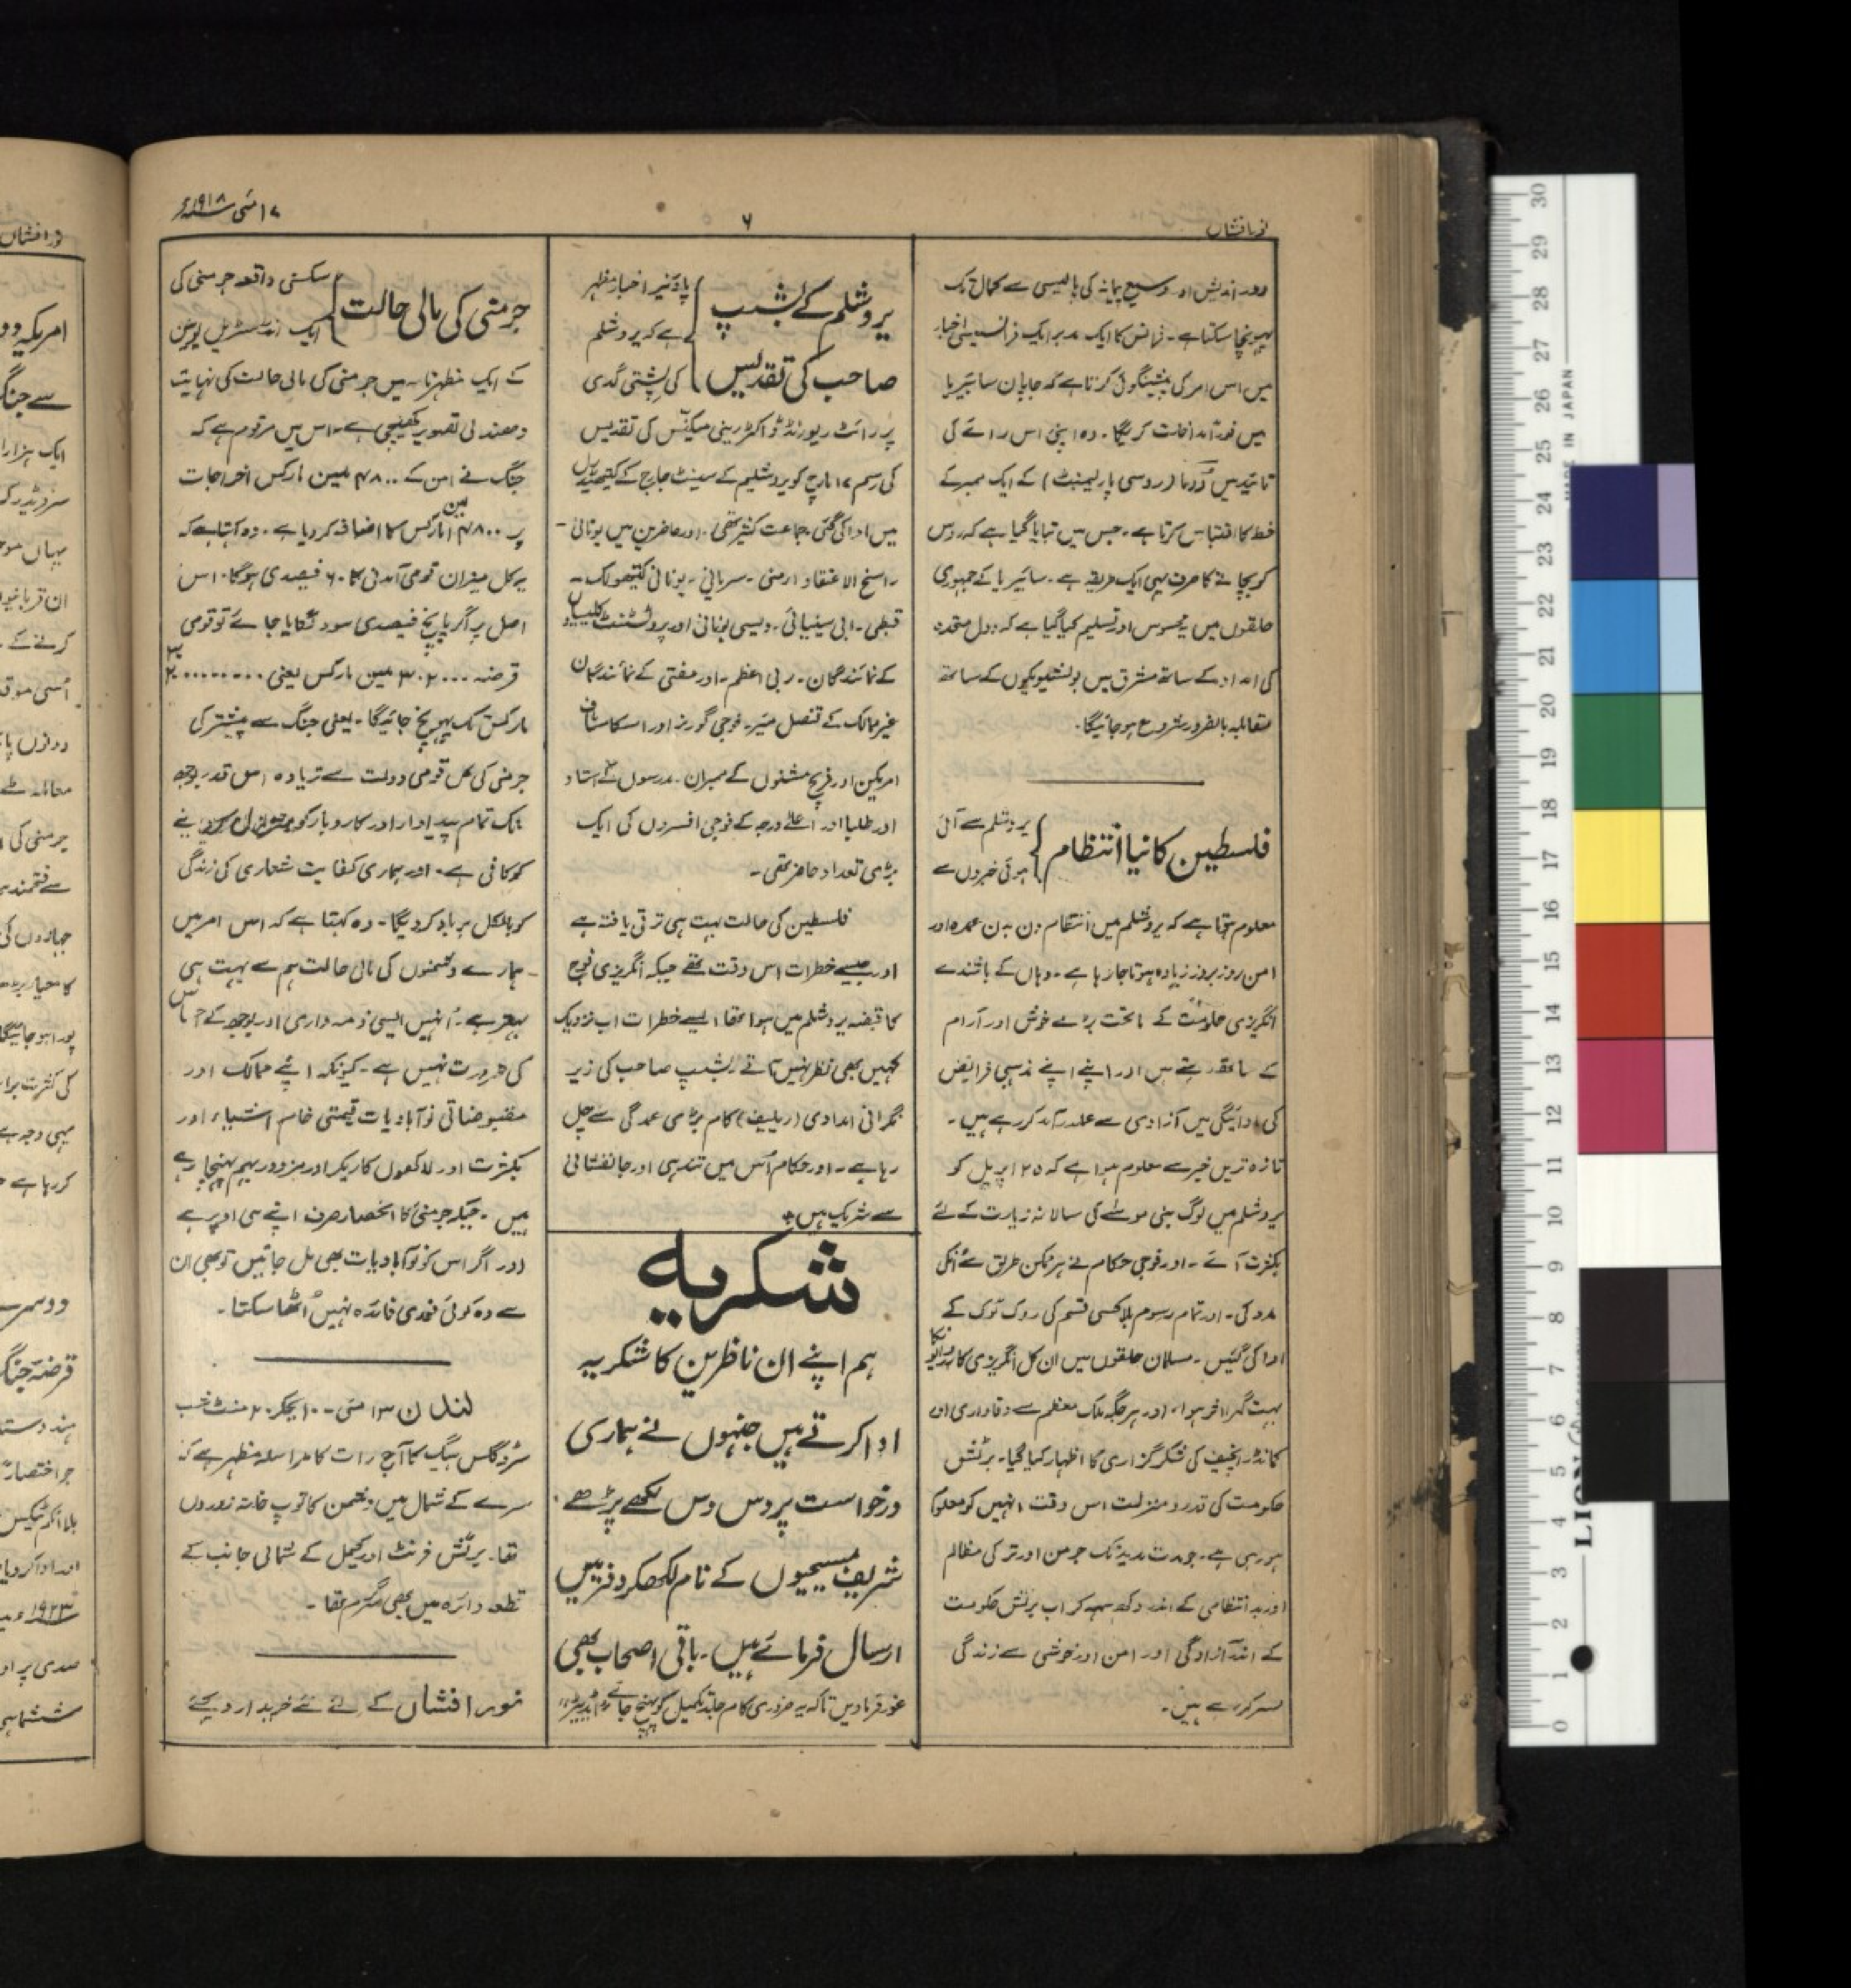 نور افشاں
۶
۱۷ مئی ۱۹۱۸ء
دور اندیش اور وسیع پیمانہ کی پالیسی سے کمال تک
پہونچا سکتا ہے۔ فرانس کا ایک مدبر ایک فرانسیسی اخبار
میں اس امر کی پیشینگوئی کرتا ہے کہ جاپان سائبیریا
میں فوراً مداخلت کریگا۔ وہ اپنی اس رائے کی
تائید میں دُوما (روسی پارلیمنٹ) کے ایک ممبر کے
خط کا اقتباس کرتا ہے۔ جس میں بتایا گیا ہے کہ روس
کو بچانے کا صرف یہی ایک طریقہ ہے۔ سائبیریا کے جمہوری
حلقوں میں محسوس اور تسلیم کیا گیا ہے کہ دول متحدہ
کی امداد کے ساتھ مشرق میں بولشیویکیوں کے ساتھ
مقابلہ بالضرور شروع ہوجائیگا۔
فلسطین کا نیا انتظام
یروشلم سے آئی
ہوئی خبروں سے
معلوم ہوتا ہے کہ یروشلم میں انتظام دن بدن عمدہ اور
امن روز بروز زیادہ ہوتا جارہا ہے۔ وہاں کے باشندے
انگریزی حکومت کے ماتحت بڑے خوش اور آرام
کے ساتھ رہتے ہیں اور اپنے اپنے مذہبی فرائض
کی ادائیگی میں آزادی سے عملدرآمد کر رہے ہیں۔
تازہ ترین خبر سے معلوم ہوا ہے کہ ۲۵ اپریل کو
یروشلم میں لوگ بنی موسےٰ کی سالانہ زیارت کے لئے
بکثرت آئے۔ اور فوجی حکام نے ہر ممکن طریق سے اُنکی
مدد کی۔ اور تمام رسوم بلا کسی قسم کی روک ٹوک کے
ادا کی گئیں۔ مسلمان حلقوں میں ان کل انگریزی کارروائیونکا
بہت گہرا اثر ہوا، اور ہر جگہ ملک معظم سے وفاداری اور
کمانڈر انچیف کی شکرگزاری کا اظہار کیا گیا۔ برٹش
حکومت کی قدر و منزلت اس وقت انہیں کو معلوم
ہو رہی ہے۔ جو مدت مدید تک جرمن اور ترکی مظالم
اور بد انتظامی کے اندر دکھ سہہ کر اب برٹش حکومت
کے اندر آزادگی اور امن اور خوشی سے زندگی
بسر کر رہے ہیں۔
یروشلم کے بشپ
صاحب کی تقدیس
پاؤنیر اخبار مظہر
ہے کہ یروشلم
کی بشپی گدی
پر رائٹ ریورنڈ ڈاکٹر رینی میکنّس کی تقدیس
کی رسم ۱۷ مارچ کو یروشلیم کے سینٹ جارج کے کیتھیڈرل
میں ادا کی گئی۔ جماعت کثیر تھی۔ اور حاضرین میں یونانی۔
راسخ الاعتقاد ارمنی۔ سریانی۔ یونانی کیتھولک۔
قبطی۔ ابی سینیائی۔ دیسی یونانی اور پروٹسٹنٹ کلیسیاؤں
کے نمائندگان۔ ربی اعظم۔ اور مفتی کے نمائندگان
غیر ممالک کے قنصل میئر۔ فوجی گورنر اور اسکا سٹاف
امریکن اور فرنچ مشنوں کے ممبران۔ مدرسوں کے استاد
اور طلبا اور اعلےٰ درجہ کے فوجی افسروں کی ایک
بڑی تعداد حاضر تھی۔
فلسطین کی حالت بہت ہی ترقی یافتہ ہے
اور جیسے خطرات اس وقت تھے جبکہ انگریزی فوج
کا قبضہ یروشلم میں ہوا تھا ایسے خطرات اب نزدیک
کہیں بھی نظر نہیں آتے۔ بشپ صاحب کی زیر
نگرانی امدادی (ریلیف) کام بڑی عمدگی سے چل
رہا ہے۔ اور حکام اُس میں تندہی اور جانفشانی
سے شریک ہیں +
شکریہ
ہم اپنے ان ناظرین کا شکریہ
ادا کرتے ہیں جنہوں نے ہماری
درخواست پر دس دس لکھے پڑھے
شریف مسیحیوں کے نام لکھکر دفتر میں
ارسال فرمائے ہیں۔ باقی اصحاب بھی
غور فرماویں تاکہ یہ ضروری کام جلد تکمیل کو پہنچ جائے "ایڈیٹر"
جرمنی کی مالی حالت
سکسنی واقعہ جرمنی کی
ایک انڈسٹریل یونین
کے ایک مظہرنامہ میں جرمنی کی مالی حالت کی نہایت
دھندلی تصویر کھینچی ہے۔ اس میں مرقوم ہے کہ
جنگ نے امن کے ۴۸۰۰ ملین مارکس اخراجات
پر ۴۸۰۰ ملین مارکس کا اضافہ کر دیا ہے۔ وہ کہتا ہے کہ
یہ کل میزان قومی آمدنی کا ۶۰ فیصدی ہوگا۔ اس
اصل پر اگر پانچ فیصدی سود لگایا جائے تو قومی
قرضہ ملین مارکس یعنی
مارکس تک پہونچ جائیگا۔ یعنی جنگ سے پیشتر کی
جرمنی کی کل قومی دولت سے زیادہ اس قدر بوجھ
ملک تمام پیداوار اور کاروبار کو
کو کافی ہے۔ اور ہماری کفایت شعاری کی زندگی
کو بالکل برباد کر دیگا۔ وہ کہتا ہے کہ اس امر میں
ہمارے دشمنوں کی مالی حالت ہم سے بہت ہی
بہتر ہے۔ اُنہیں ایسی ذمہ داری اور بوجھ کے
کی ضرورت نہیں ہے۔ کیونکہ اپنے ممالک اور
مقبوضاتی نوآبادیات قیمتی خام اشیاء اور
بکثرت اور لاکھوں کاریگر اور مزدور بہم پہنچا رہے
ہیں۔ جبکہ جرمنی کا انحصار صرف اپنے ہی اوپر ہے
اور اگر اس کو نوآبادیات بھی مل جائیں تو بھی ان
سے وہ کوئی فوری فائدہ نہیں اُٹھا سکتا۔
لندن ۱۳ مئی۔ ۱۰ بجکر ۲۰ منٹ شب
سرڈگلس ہیگ کا آج رات کا مراسلہ مظہر ہے کہ
سرے کے شمال میں دشمن کا توپ خانہ زوروں
تھا۔ برٹش فرنٹ اور کیمل کے شمالی جانب کے
قطعہ دائرہ میں بھی سرگرم تھا۔
نور افشاں کے لئے نئے خریدار دیجئے
امریکہ
سے جنگ
ایک ہزار
یہاں
کرنے کے
دونوں
جرمنی کی
جہازوں کی
پورا ہو جائیگا
یہی وجہ ہے
کر رہا ہے
دوسر
قرضہ جنگ
جو اختصار
اور ادا کر دیا
صدی پر اور
ششماہی